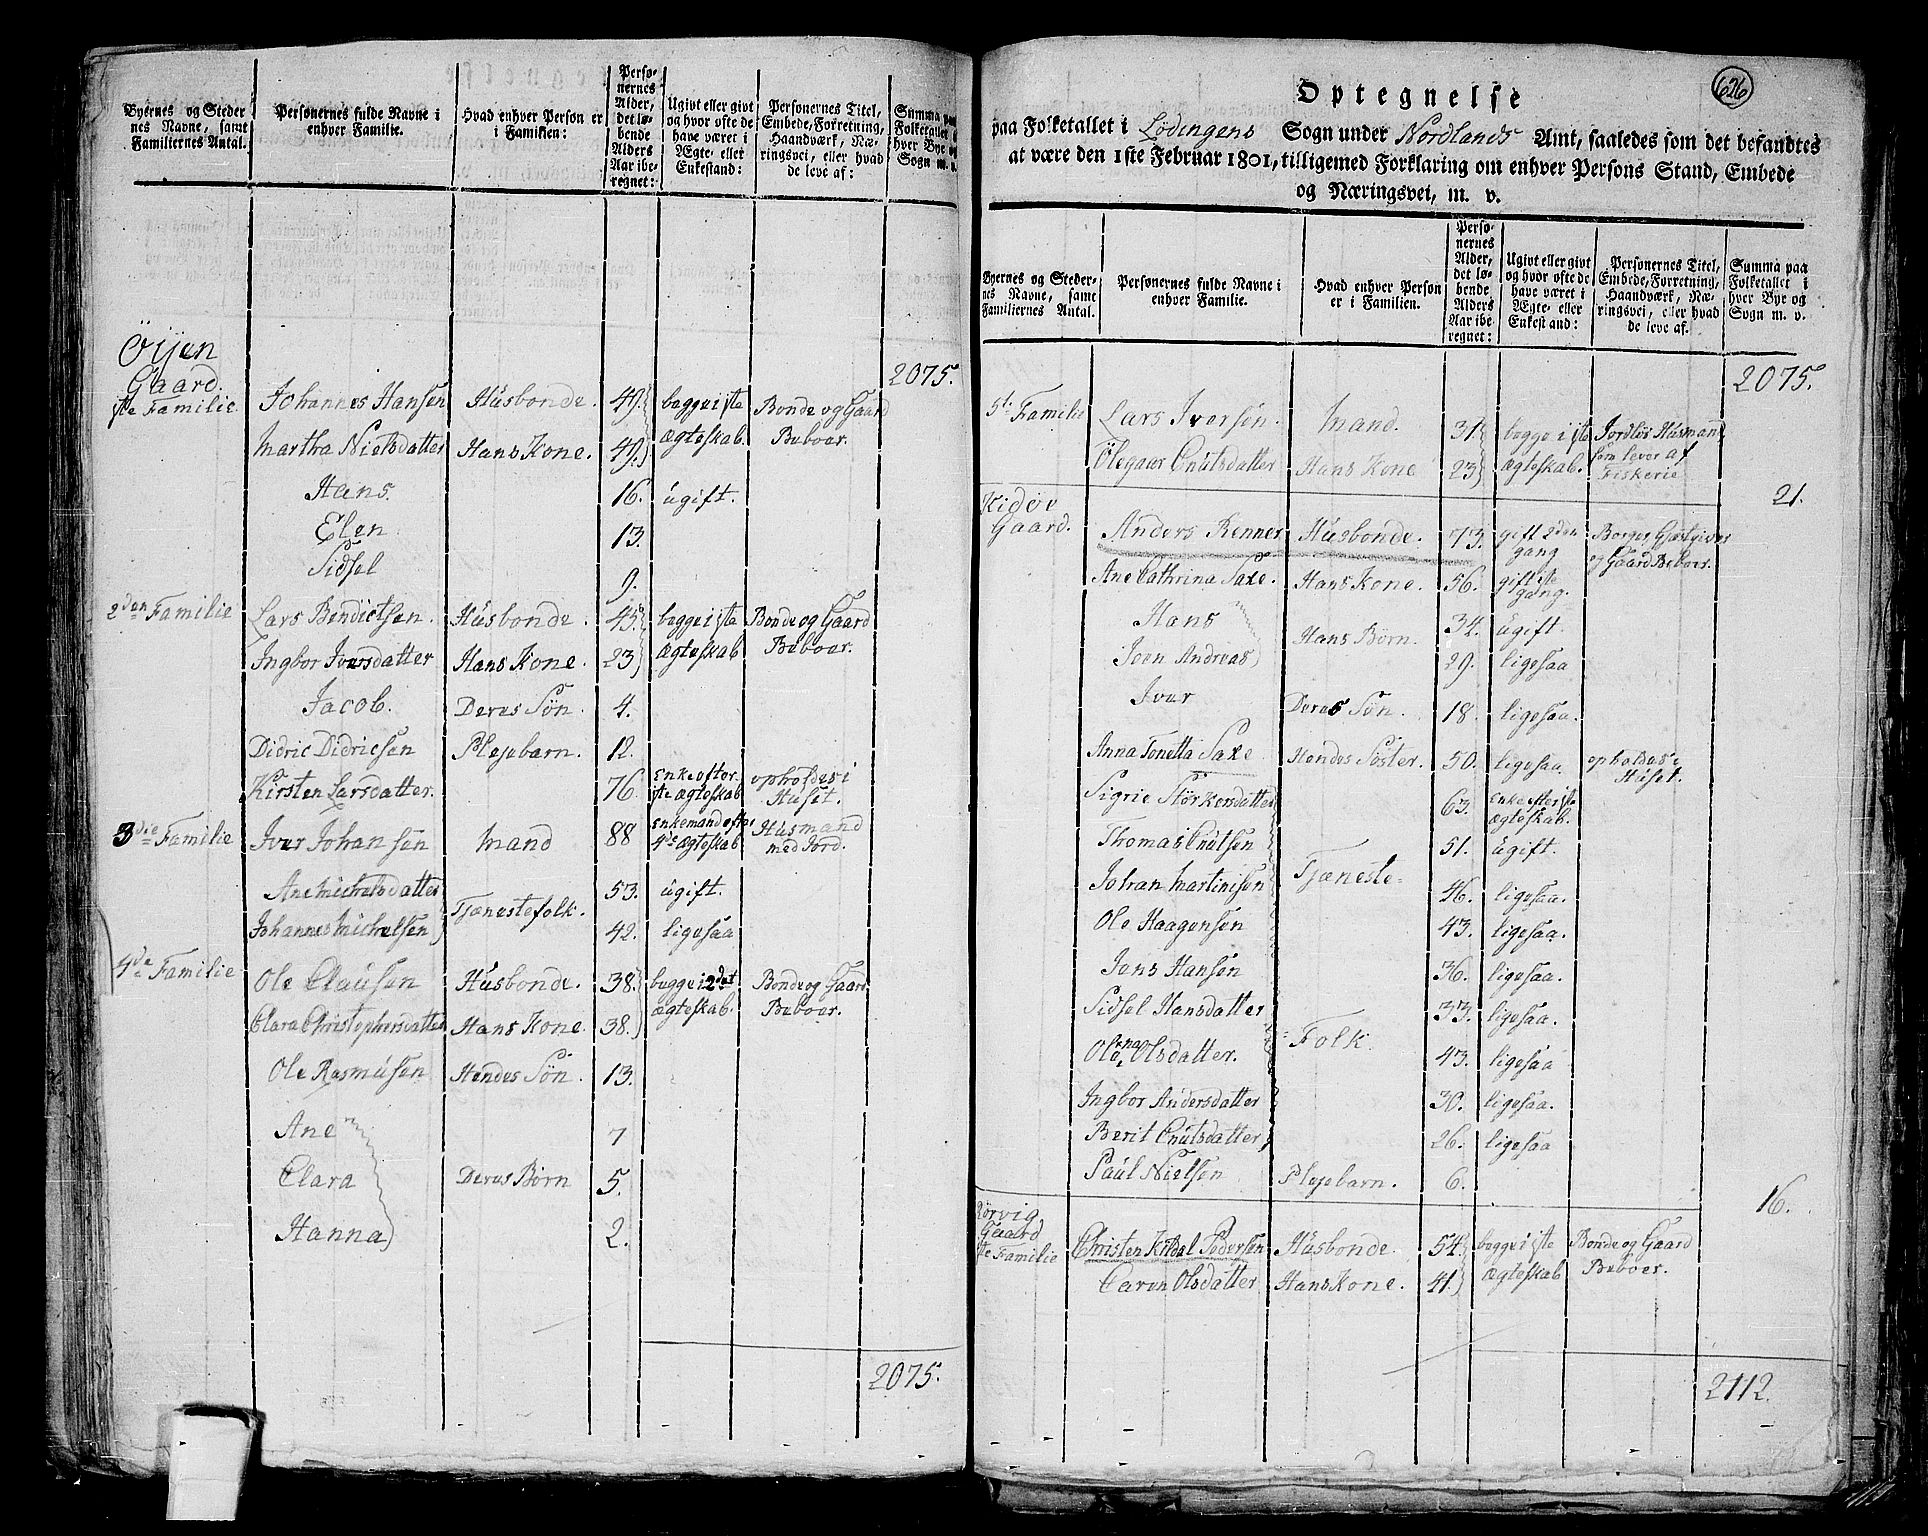 Byernes og Steder
nes Navne, samt
Familiernes Antal.
Personernes fulde Navne i
enhver Familie.
Hvad enhver Person er
i Familien:
Perso-
nernes
Alder,
det lø-
bende
Alders
Aar ibe-
regnet:
Ugivt eller givt
og hvor ofte de
have været i
Ægte- eller
Enkestand:
Personernes Titel,
Embede, Forretning,
Haandværk, Næ-
ringsvei, eller hvad
de leve af:
Summa paa
Folketallet i
hver Bye og
Sogn m. v.
Öijen
Gaard. 2075.
1ste Familie Johannes Hansen Husbonde. 49. begge i 1ste Bonde og Gaard
Martha Nielsdatter Hans Kone. 49. ægteskab. Beboer.
Hans. 16. ugift.
Elen 13.
Sidsel 9.
2den Familie Lars Bendictsen. Husbonde. 45. begge i 1ste Bonde og Gaard
Ingbor Iversdatter Hans Kone. 23 ægteskab Beboer.
Jacob. Deres Søn. 4.
Didric Didricsen Plejebarn. 12.
Kirsten Larsdatter. 76. Enke efter 1ste ægteskab opholdes i Huset.
3die Familie Iver Johansen Mand 88 Enkemand efter 4de ægteskab Husmand med Jord.
Ane Michelsdatter 53. ugift.
Tjenestefolk.
Johannes Michelsen 42. ligesaa
4de Familie Ole Clausen Husbonde. 38. begge i 2det Bonde og Gaard
Clara Christophersdatter Hans Kone. 38. ægteskab. Beboer.
Ole Rasmusen Hendes Søn. 13.
Ane 7
Clara Deres Børn 5.
Hanna 2.
2075.
626
Optegnelse
paa Folketallet i Lødingens Sogn under Nordlands Amt, saaledes som det befandtes
at være den 1ste Februar 1801, tilligemed Forklaring om enhver Persons Stand, Embede
og Næringsvei, m. v.
Byernes og Steder-
nes Navne, samt
Familiernes Antal.
Personernes fulde Navne i
enhver Familie.
Hvad enhver Person
er i Familien.
Perso-
nernes
Alder,
det lø-
bende
Alders
Aar ibe-
regnet:
Ugivt eller givt
og hvor ofte de
have været i
Ægte- eller
Enkestand:
Personernes Titel,
Embede, Forretning,
Haandværk, Næ-
ringsvei, eller hvad
de leve af.
Summa paa
Folketallet i
hver Bye og
Sogn m. v.
2075.
5te Familie Lars Iversen. Mand. 31. begge i 1ste Jordløs Husmand
Olegaar Cnutsdatter Hans Kone 23 ægteskab. som lever af Fiskerie
21.
Kidøe
Gaard. Anders Kenner Husbonde. 73. gift 2den gang Borger Gjæstgiver og Gaard Beboer.
Ane Cathrina Saxe. Hans Kone. 56. gift 1ste gang.
Hans 34. ugift.
Hans Børn.
Joen Andreas 29. ligesaa
Iver Deres Søn. 18. ligesaa.
Anna Tonetta Saxe Hendes Søster. 50. ligesaa. opholdes i Huset.
Sigrie Störkersdatter 63. Enke efter 1ste ægteskab.
Thomas Cnutsen 51. ugift.
Johan Martinisen Tjeneste- 46. ligesaa.
Ole Haagensen 43. ligesaa.
Jens Hansen 36. ligesaa.
Sidsel Hansdatter 33. ligesaa.
Olena Olsdatter. -Folk. 43. ligesaa
Ingbor Andersdatter 30. ligesaa.
Berit Cnutsdatter 26. ligesaa
Paul Nielsen Plejebarn. 6.
16.
Rörvig
Gaard
1ste Familie Christen Kildal Pedersen Husbonde. 54. begge i 1ste Bonde og Gaard
Caren Olsdatter Hans Kone. 41. ægteskab Beboer.
2112.